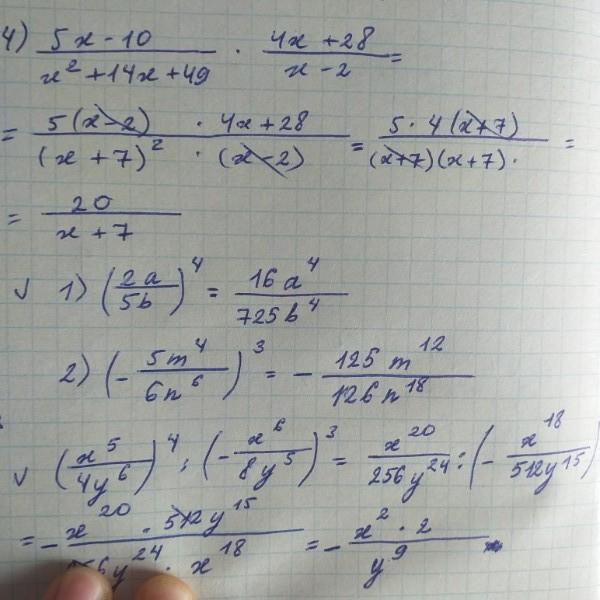 4) (5x - 10)/(x² + 14x + 49) · (4x + 28)/(x - 2) =
= (5(x - 2) · 4x + 28)/((x + 7)² · (x - 2)) = (5 · 4(x + 7))/((x + 7)(x + 7) · =
= 20/(x + 7)
√ 1) (2a/5b)⁴ = 16a⁴/725b⁴
2) (- 5m⁴/6n⁶)³ = - 125m¹²/126n¹⁸
√ (x⁵/4y⁶)⁴ : (- x⁶/8y⁵)³ = x²⁰/256y²⁴ : (- x¹⁸/512y¹⁵)
= - (x²⁰ · 512y¹⁵)/(56y²⁴ · x¹⁸) = - (x² · 2)/y⁹